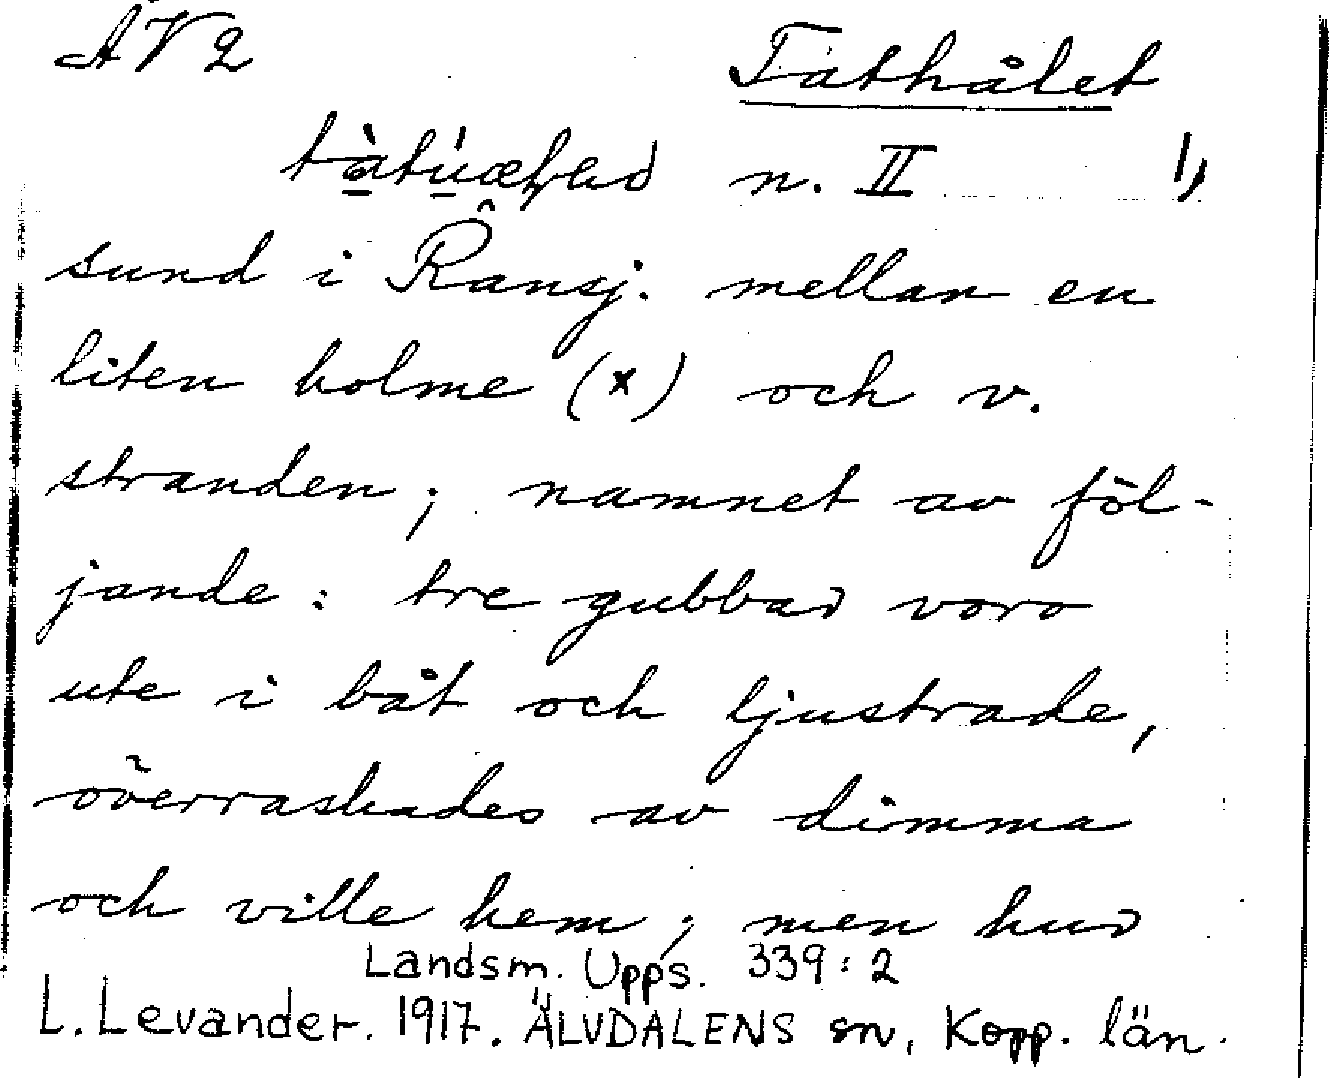 ÄV 2
Tåthålet
n. II 1,
sund i Rånsj. mellan en
liten holme (x) och v.
stranden; namnet av föl-
jande: tre gubbar voro
ute i båt och ljustrade,
överraskades av dimma
och ville hem; men hur
Landsm. Upps. 339:2
L. Levander. 1917. ÄLVDALENS sn, Kopp. län.